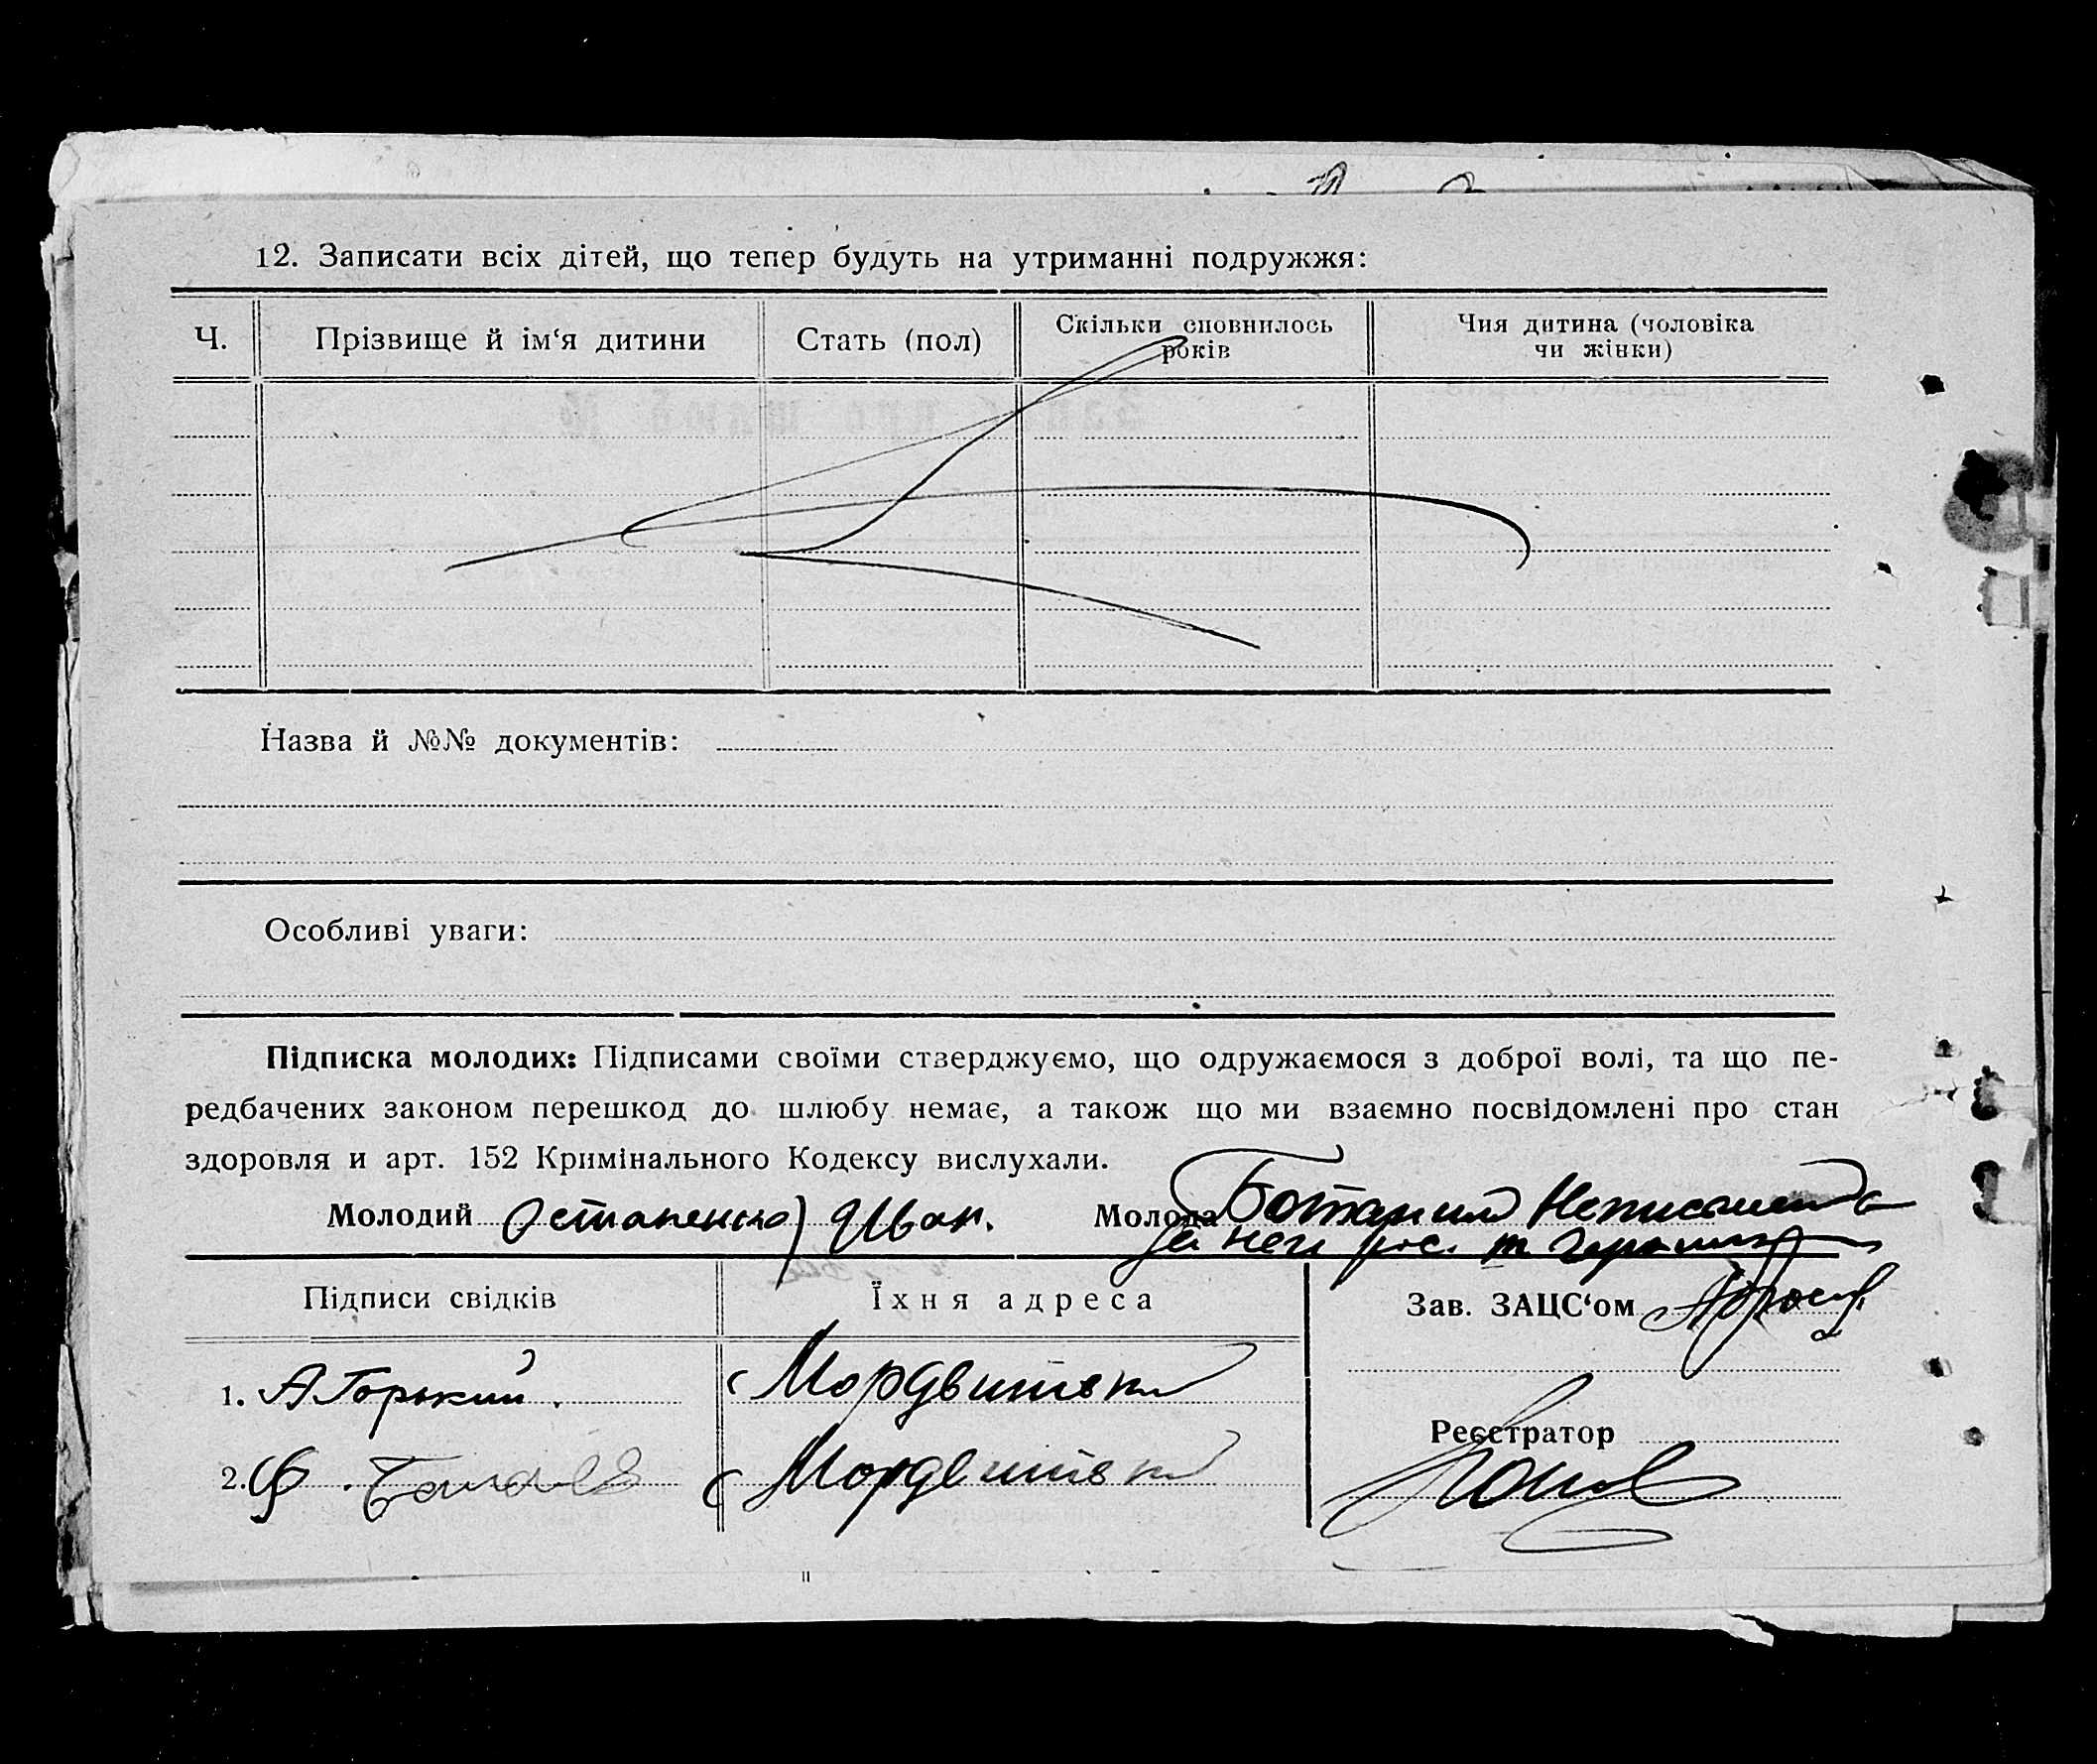 12. Записати всіх дітей, що тепер будуть на утриманні подружжя:
Ч.
Прізвище й ім‘я дитини
Стать (пол)
Скільки сповнилось
років
Чия дитина (чоловіка
чи жінки)
Назва й №№ документів:
Особливі уваги:
Підписка молодих: Підписами своїми стверджуємо, що одружаємося з доброї волі, та що пе-
редбачених законом перешкод до шлюбу немає, а також що ми взаємно посвідомлені про стан
здоровля и арт. 152 Кримінального Кодексу вислухали.
Молодий Остапенко Иван.
Молода
за неи рос.
Підписи свідків
Їхня адреса
Зав. ЗАЦС‘ом
1. А Горький.
Мордвинівка
Реєстратор
2.
Мордвинівка